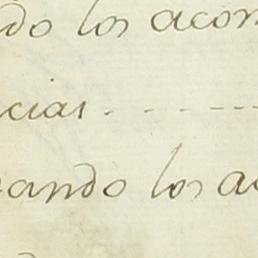 do los acom
cias - - - - -
ando los ac